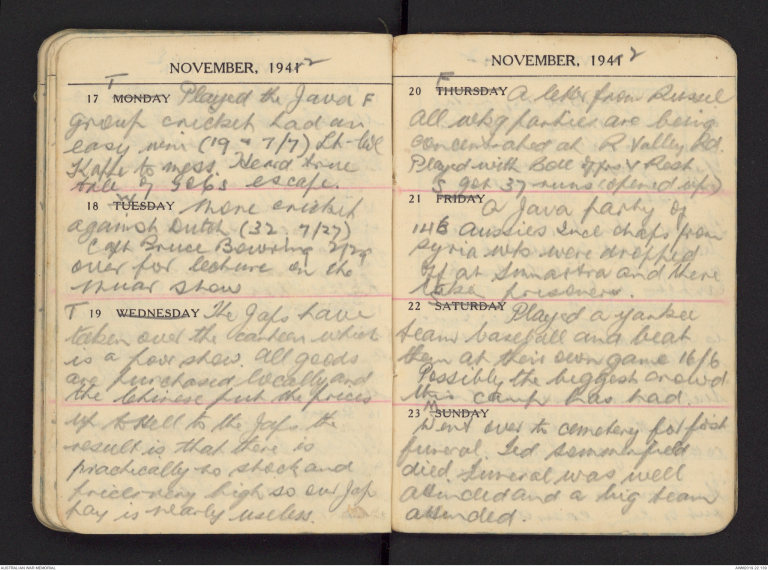 NOVEMBER, 1941 2
T
17 MONDAY Played the Java F
group cricket had an
easy win (19 - 7/7) Lt-Col
to mess. Heard true
tale of escape.
W
18 TUESDAY More cricket
against Dutch (32 7/27)
Capt Bruce Bowring 2/29
over for lecture on the
Muar show
T
19 WEDNESDAY The Japs have
taken over the canteen which
is a poor show. All goods
are purchased locally and
the Chinese put the prices
up to Hell to the Japs, the
result is that there is
practically no stock and
prices very high so our Jap
pay is nearly useless.
NOVEMBER, 1941 2
F
20 THURSDAY A letter from Russell
All wkg parties are being
concentrated at R Valley Rd.
Played with Bde v Rest
got 37 runs (opened up)
S
21 FRIDAY A Java party of
Aussies incl chaps from
Syria who were dropped
off at Sumatra and there
taken prisoners.
S
22 SATURDAY Played a yankee
team baseball and beat
them at their own game 16/6
Possibly the biggest crowd
this camp has had.
M
23 SUNDAY
Went over to cemetery for first
funeral. Ted
died. Funeral was well
attended and a big team
attended.
AUSTRALIAN WAR MEMORIAL